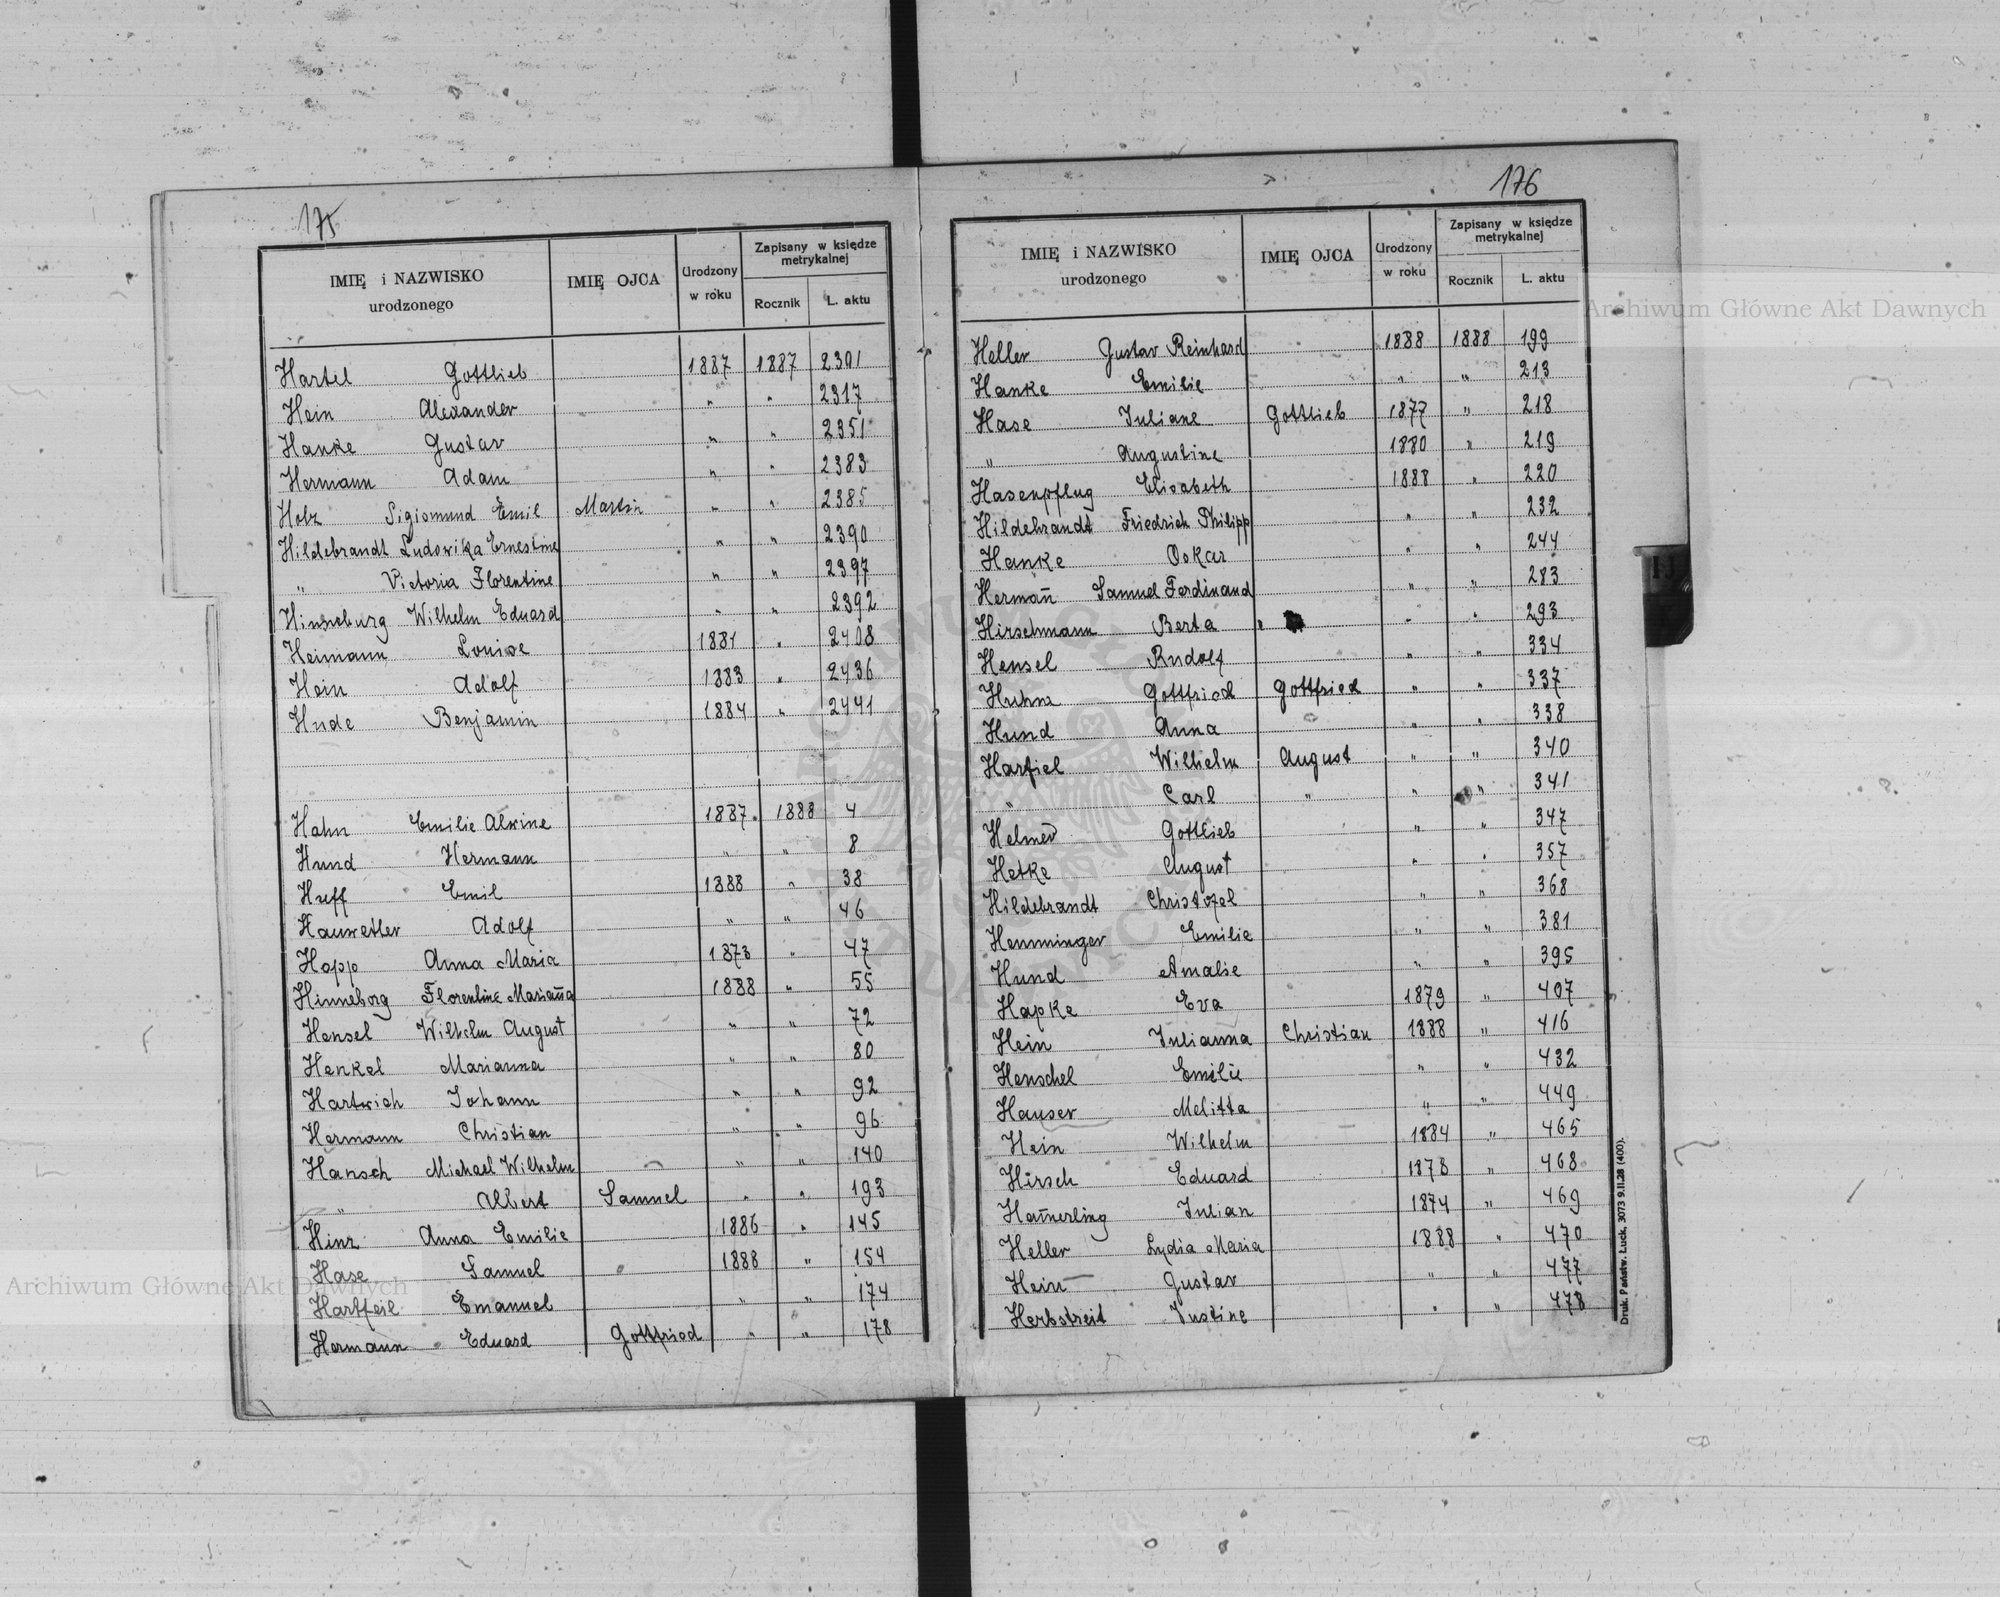 175
IMIĘ i NAZWISKO urodzonego IMIĘ OJCA Urodzony w roku Zapisany w księdze metrykalnej Rocznik L. aktu
Hartel Gottlieb 1887 1887 2301
Hein Alexander " " 2317
Hanke Gustav " " 2351
Hermann Adam " " 2383
Holz Sigismund Emil Martin " " 2385
Hildebrandt Ludowika Ernestine " " 2390
" Victoria Florentine " " 2397
Hinneburg Wilhelm Eduard " " 2392
Heimann Louise 1881 " 2408
Hein Adolf 1883 " 2436
Hude Benjamin 1884 " 2441
Hahn Emilie Alwine 1887 1888 4
Hund Hermann " " 8
Huff Emil 1888 " 38
Adolf " " 46
Hopp Anna Maria 1873 " 47
Hinneborg Florentine Mariaña 1888 " 55
Hensel Wilhelm August " " 72
Henkel Marianna " " 80
Hartwich Johann " " 92
Hermann Christian " " 96
Hansch Michael Wilhelm " " 140
" Albert Samuel " " 193
Hinz Anna Emilie 1886 " 145
Hase Samuel 1888 " 154
Hartfeil Emanuel " " 174
Hermann Eduard Gottfried " " 178
176
IMIĘ i NAZWISKO urodzonego IMIĘ OJCA Urodzony w roku Zapisany w księdze metrykalnej Rocznik L. aktu
Heller Gustav Reinhard 1888 1888 199
Hanke Emilie " " 213
Hase Juliane Gottlieb 1877 " 218
" Augustine 1880 " 219
Hasenpflug Elisabeth 1888 " 220
Hildebrandt Friedrich Philipp " " 232
Hanke Oskar " " 244
Hermañ Samuel Ferdinand " " 283
Hirschmann Berta " " 293
Hensel Rudolf " " 334
Huhn Gottfried Gottfried " " 337
Hund Anna " " 338
Harfiel Wilhelm August " " 340
" Carl " " " 341
Gottlieb " " 347
Hetke August " " 357
Hildebrandt Christofel " " 368
Hemminger Emilie " " 381
Hund Amalie " " 395
Hapke Eva 1879 " 407
Hein Julianna Christian 1888 " 416
Henschel Emilie " " 432
Hauser Melitta " " 449
Hein Wilhelm 1884 " 465
Hirsch Eduard 1878 " 468
Ham̄erling Julian 1874 " 469
Heller Lydia Maria 1888 " 470
Hein Gustav " " 477
Herbstreit Justine " " 478
Druk. Państw. Łuck. 3073 9.II.28 (400).
Archiwum Główne Akt Dawnych
Archiwum Główne Akt Dawnych